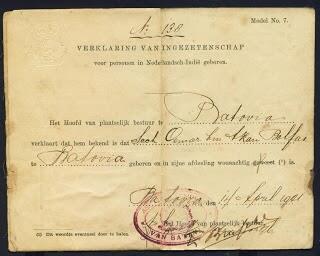 No 138
Model No. 7.
VERKLARING VAN INGEZETENSCHAP
voor personen in Nederlandsch-Indië geboren.
Het Hoofd van plaatselijk bestuur te Batavia
verklaart dat hem bekend is dat Said Oemar bin
te Batavia geboren en in zijne afdeeling woonachtig geweest (*) is.
Batavia den April
Het Hoofd van plaatselijk bestuur,
VAN BATA
(1) Dit woordje eventueel door te halen.